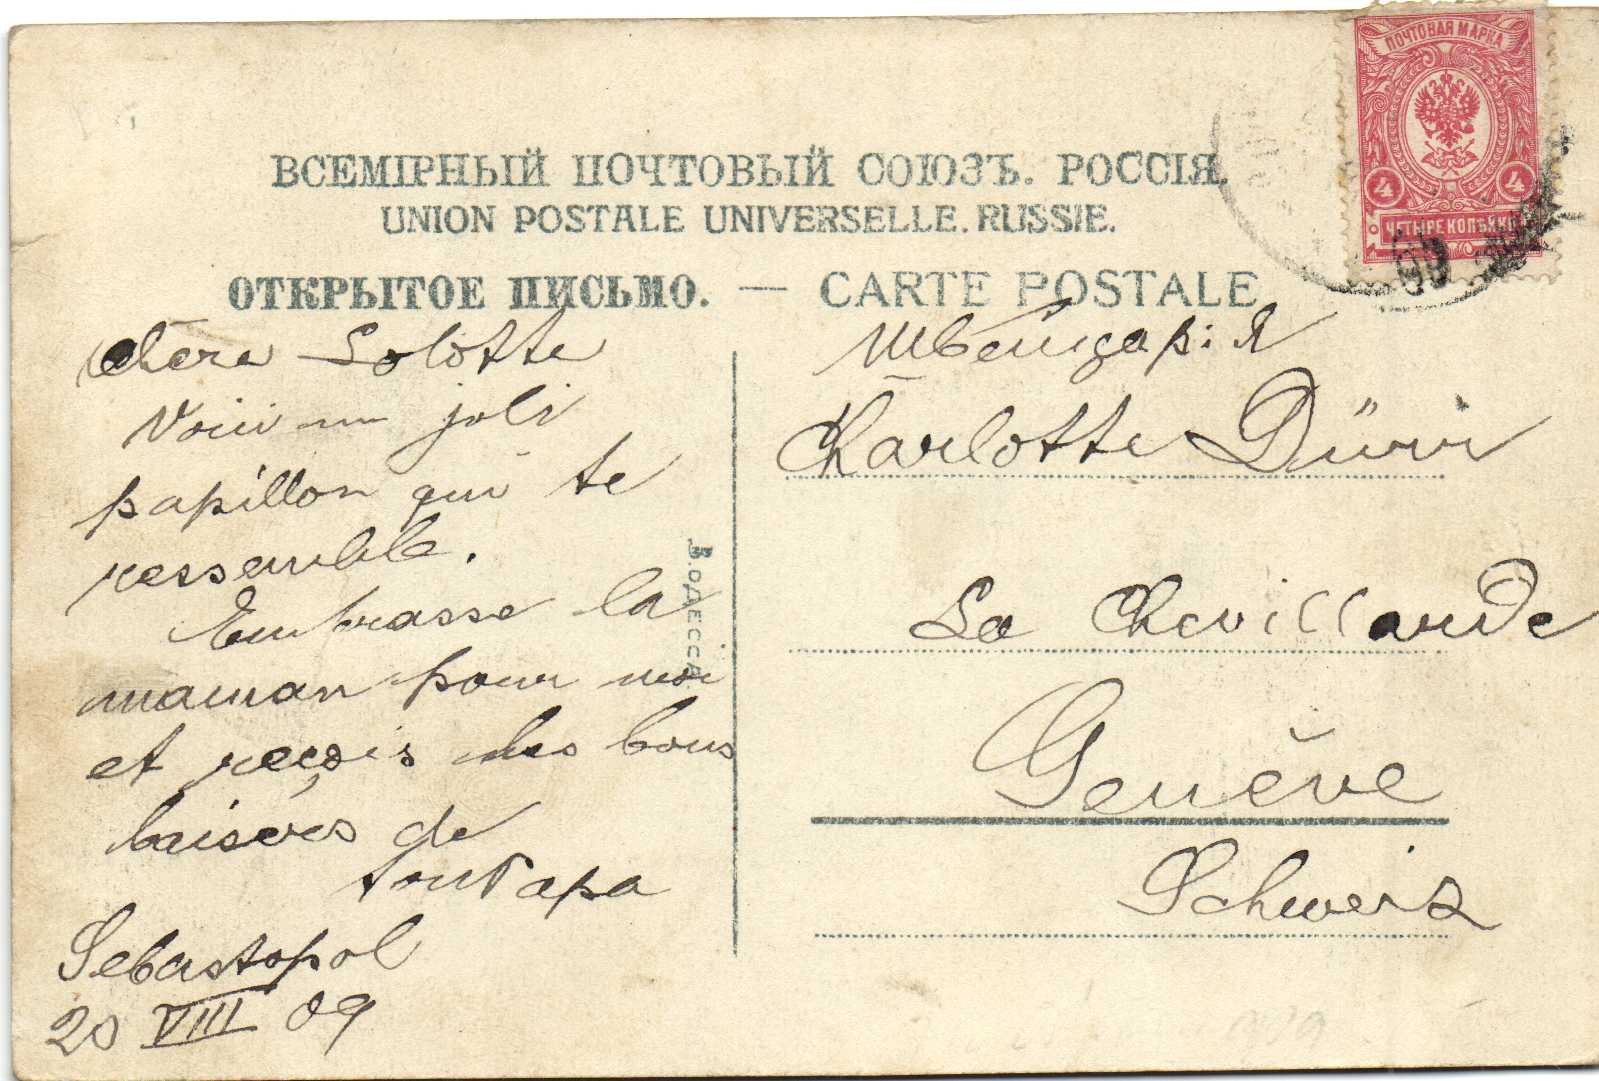 ПОЧТОВАЯ МАРКА
4 4
ЧЕТЫРЕ КОПѢЙКИ
ВСЕМІРНЫЙ ПОЧТОВЫЙ СОЮЗЪ. РОССІЯ.
UNION POSTALE UNIVERSELLE. RUSSIE.
ОТКРЫТОЕ ПИСЬМО. — CARTE POSTALE
Chère Lolotte
Voici un joli
papillon qui te
ressemble.
Embrasse la
maman pour moi
et reçois des bons
baisers de
ton Papa
Sebastopol
20 VIII 09
В. ОДЕССА.
Швейцарія
Charlotte Dürr
La Chevillarde
Genève
Schweiz